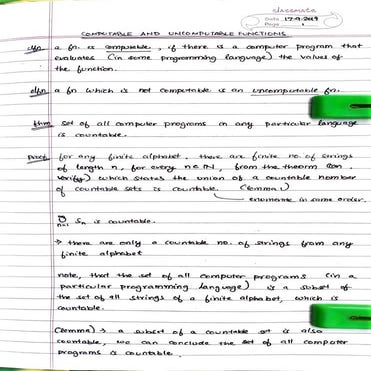 classmate
Date 17-9-2019
Page 1
COMPUTABLE AND UNCOMPUTABLE FUNCTIONS
dfn a fn. is computable, if there is a computer program that
evaluates (in some programming language) the values of
the function.
dfn a fn which is not computable is an uncomputable fn.
thm set of all computer programs in any particular language
is countable.
Proof for any finite alphabet, there are finite no. of strings
of length n, for every n ∈ IN, from the theorm (can
verify) which states the union of a countable number
of countable sets is countable. (lemma 1)
enumerate in same order.
∞
∪ Sn is countable.
n=1
→ there are only a countable no. of strings from any
finite alphabet
note, that the set of all computer programs (in a
particular programming language) is a subset of
the set of all strings of a finite alphabet, which is
countable.
(lemma) → a subset of a countable set is also
countable, we can conclude the set of all computer
programs is countable.